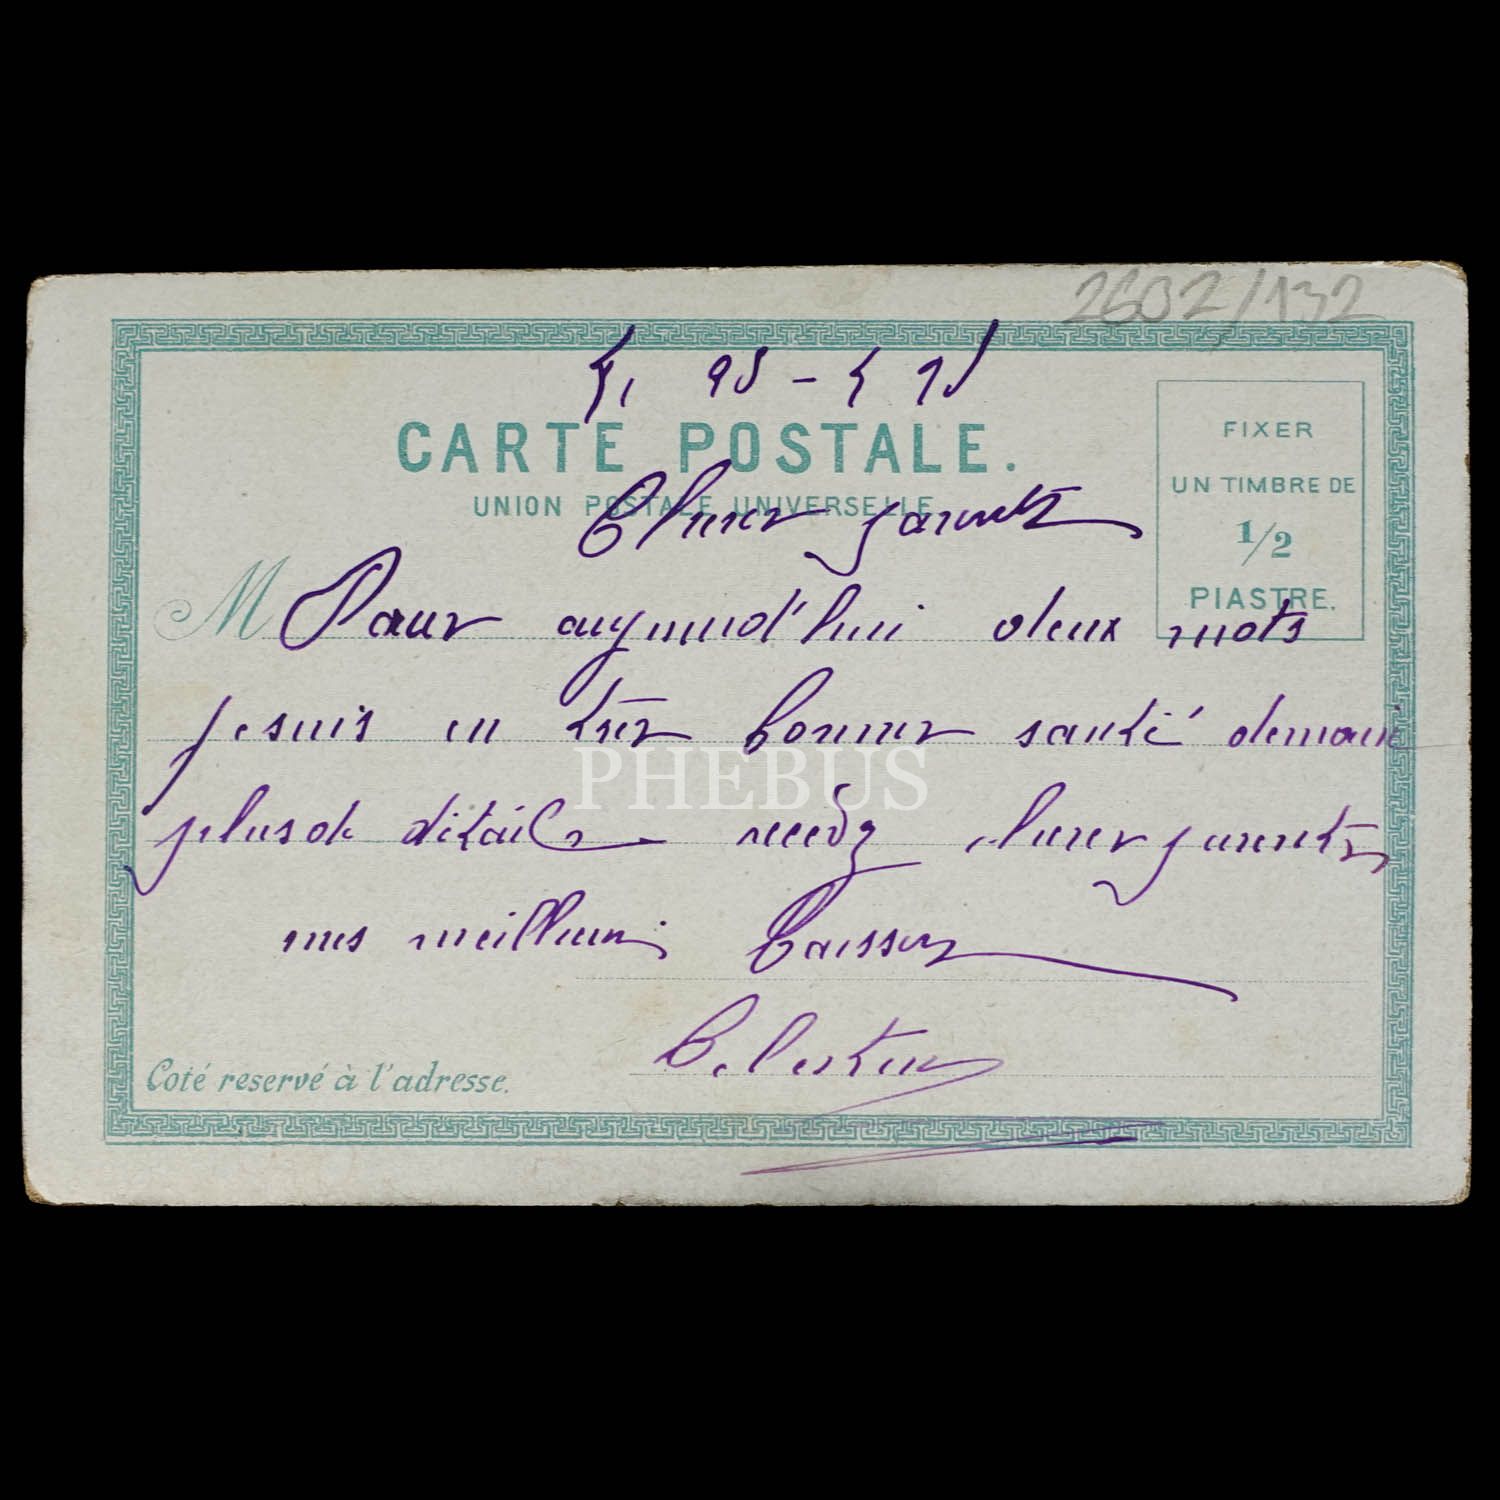 2602/132
CARTE POSTALE.
UNION POSTALE UNIVERSELLE
Cher parents
FIXER
UN TIMBRE DE
1/2
PIASTRE.
M Pour aujourd'hui deux mots
je suis en très bonne santé demain
plus de détails recevez cher parents
mes meilleurs baisser
PHEBUS
Celestin
Coté reservé à l'adresse.